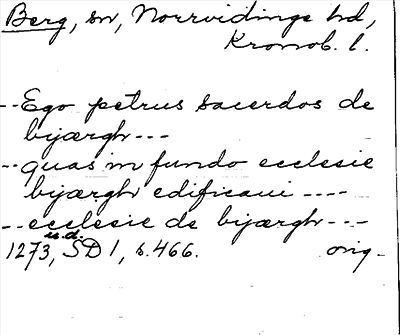 Berg, sn, Norrvidinge hd,
Kronob. l.
--Ego petrus sacerdos de
biyærgh---
--quas in fundo ecclesie
biyærgh edificaui ----
--ecclesie de biyærgh---
u.d.
1273, SD 1, s. 466. orig.